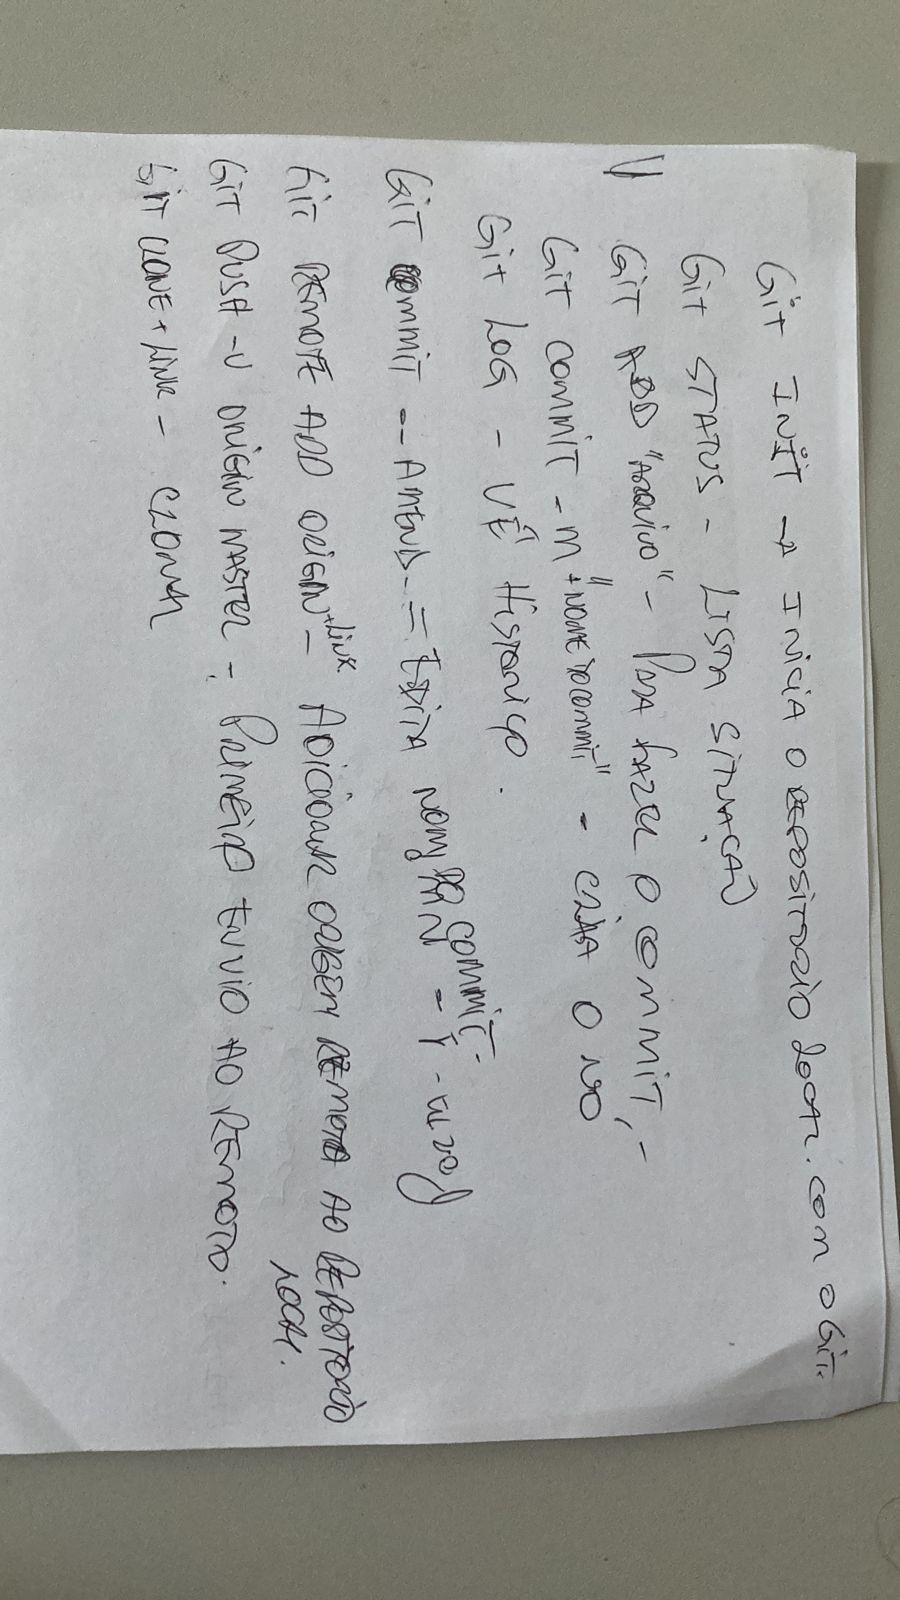 Git INIT → INICIA O REPOSITORIO LOCAL. COM O GIT.
Git STATUS - LISTA SITUAÇÃO
V GIT ADD "ARQUIVO" - PARA FAZER O COMMIT, -
GIT COMMIT - m "+NOME DO COMMIT" - CRIA O NÓ
Git LOG - VÊ HISTORICO.
GIT COMMIT -- AMEND - = EDITA DO COMMIT-
GIT REMOTE ADD ORIGIN +LINK - ADICIONAR ORIGEM REMOTA AO REPOSITORIO
LOCAL.
GIT PUSH -U ORIGIN MASTER - PRIMEIRO ENVIO AO REMOTO.
GIT CLONE + LINK - CLONAR